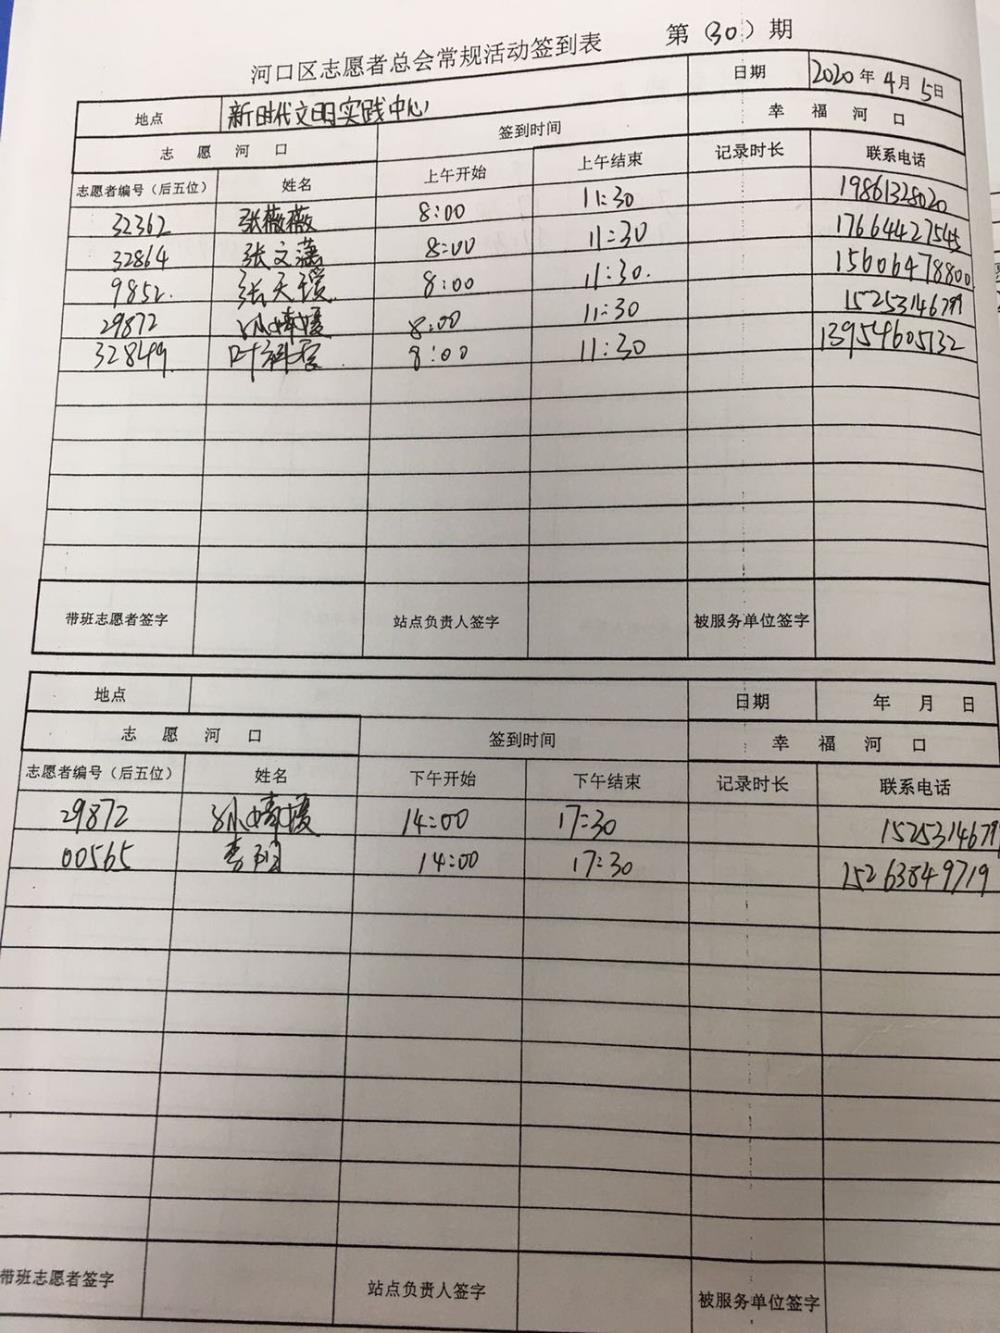 河口区志愿者总会常规活动签到表 第（30）期
地点 新时代文明实践中心 日期 2020年4月5日
志愿河口 签到时间 幸福河口
志愿者编号（后五位） 姓名 上午开始 上午结束 记录时长 联系电话
32362 张薇薇 8:00 11:30 19861328020
32864 张文潇 8:00 11:30 17664427545
9852. 张天瑗 8:00 11:30. 15606478800
29872 孙婧媛 8:00 11:30 15253146799
32849. 叶 8:00 11:30 13954605132
带班志愿者签字 站点负责人签字 被服务单位签字
地点 日期 年 月 日
志愿河口 签到时间 幸福河口
志愿者编号（后五位） 姓名 下午开始 下午结束 记录时长 联系电话
29872 孙婧媛 14:00 17:30 1525314679
00565 李 14:00 17:30 15263849719
带班志愿者签字 站点负责人签字 被服务单位签字